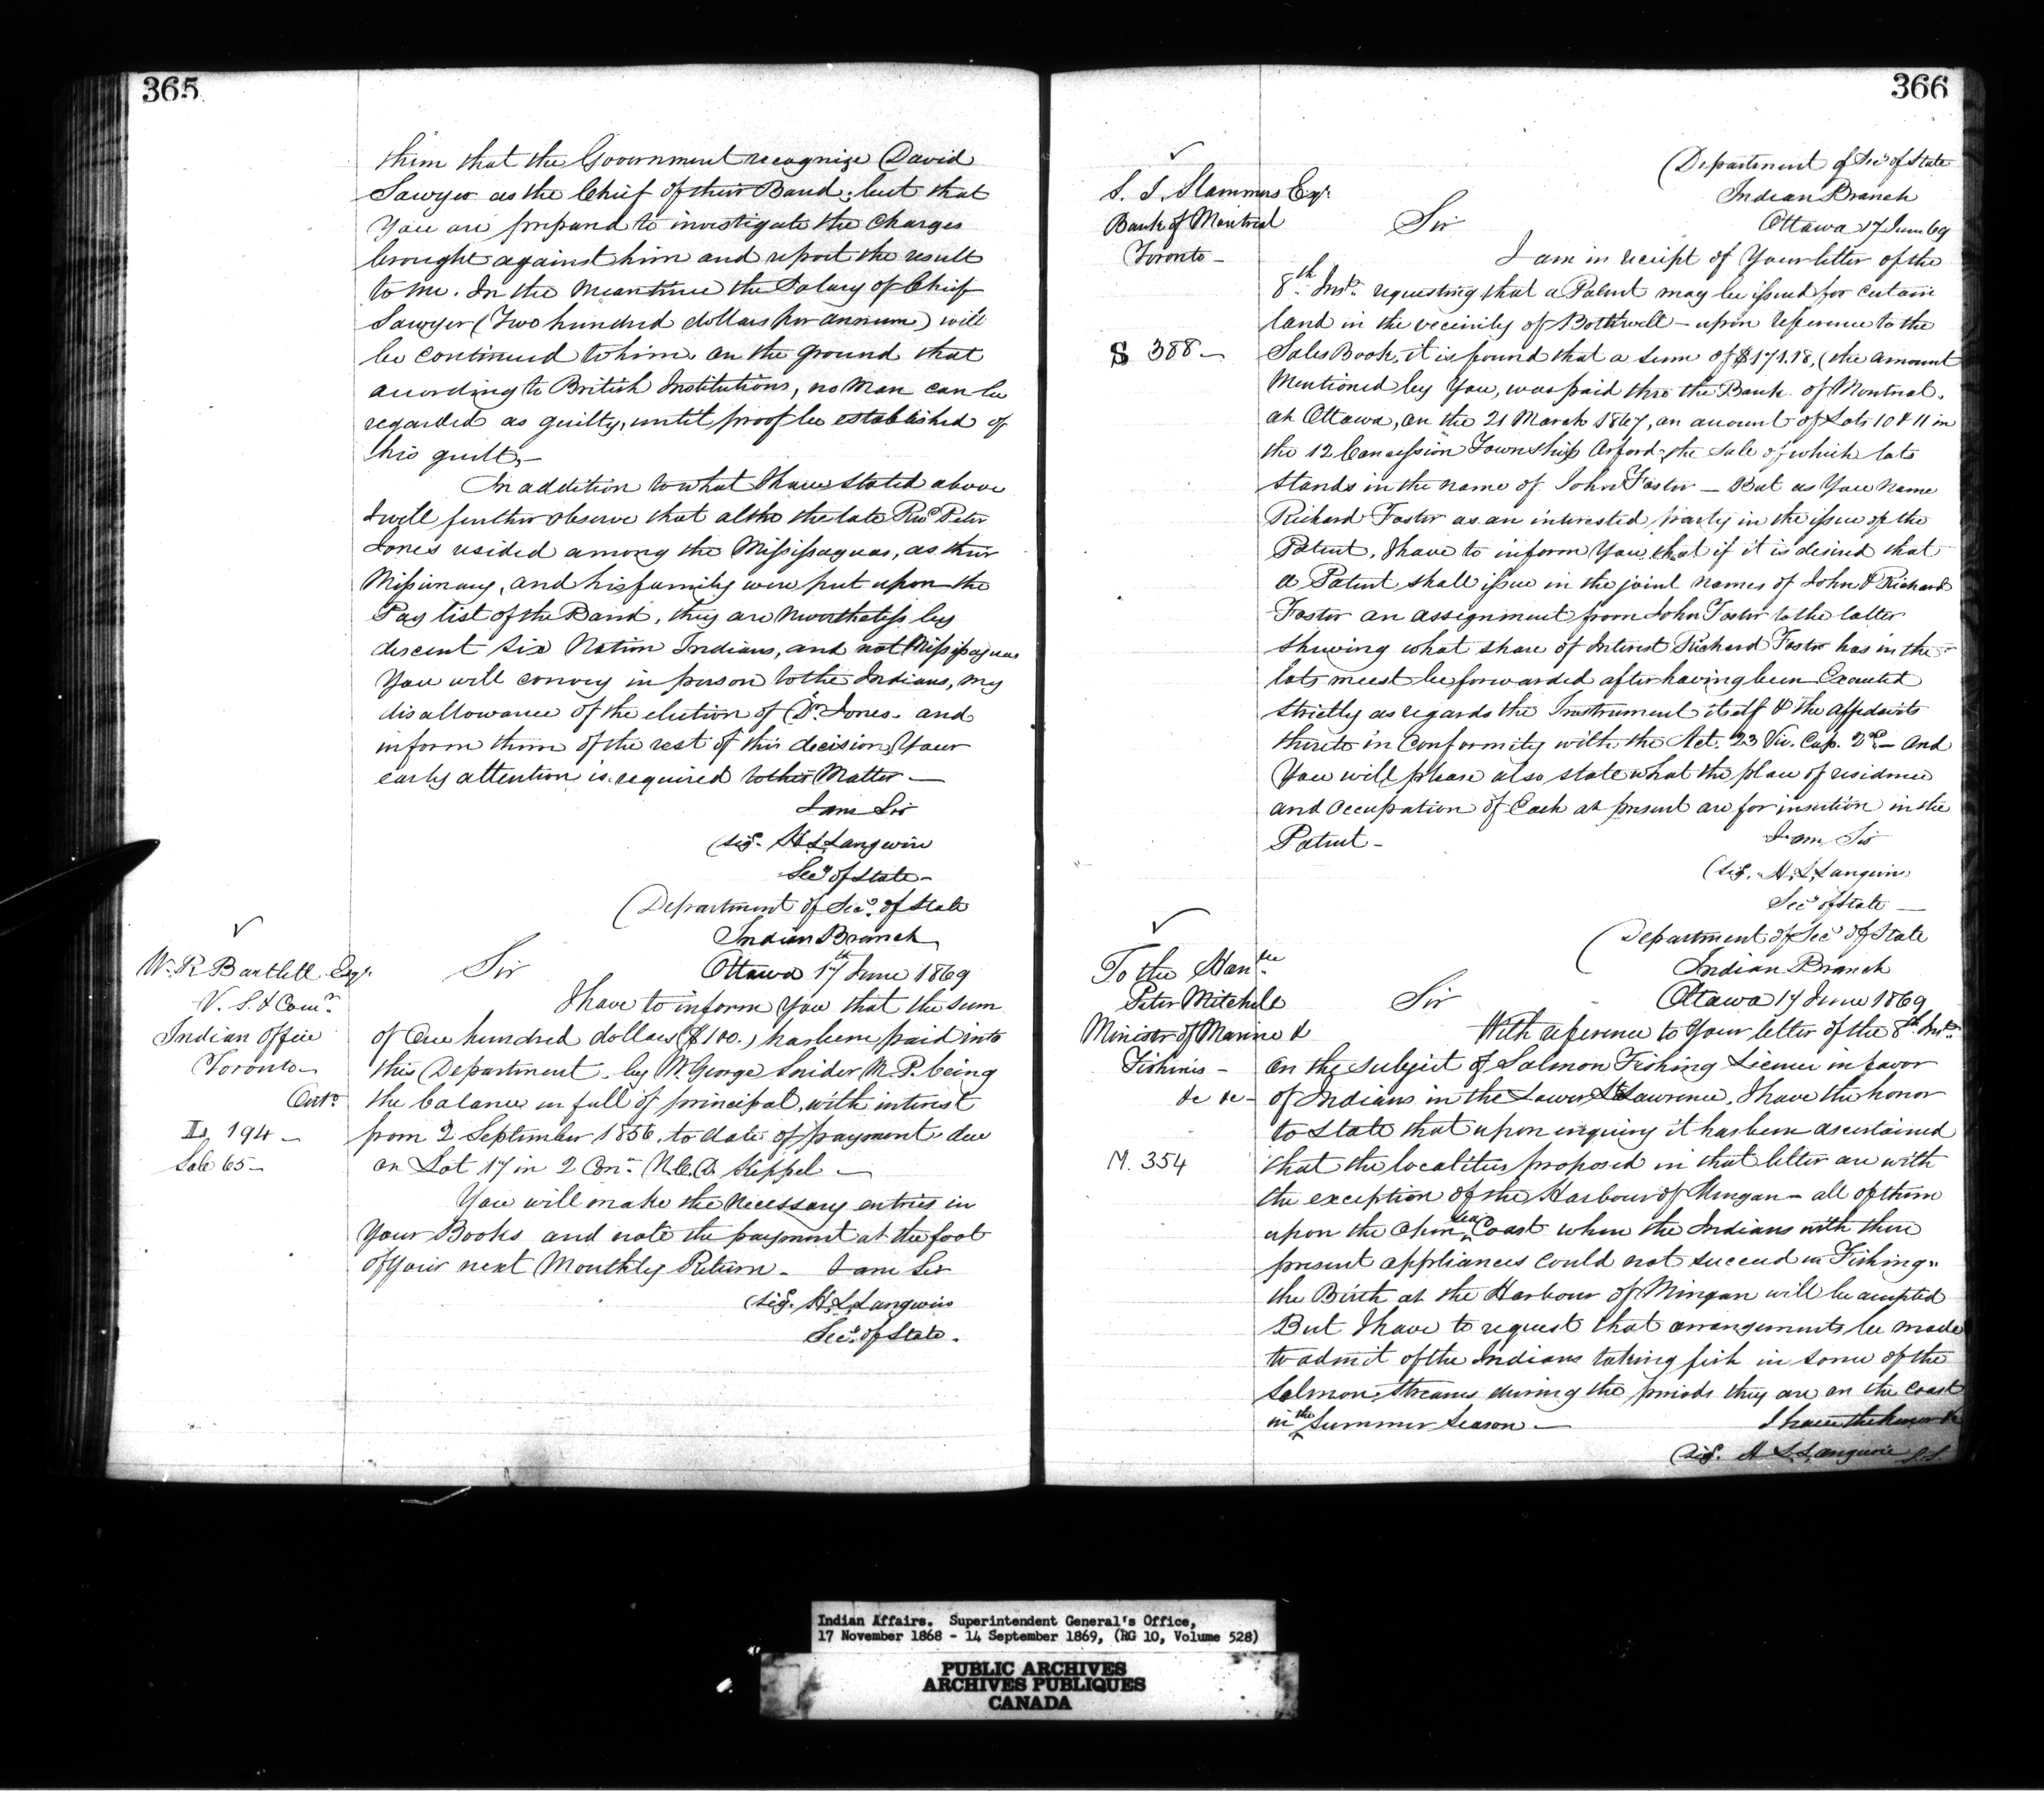 365
him that the Government recognize David
Sawyer as the Chief of their Band; but that
You are prepared to investigate the charges
brought against him and report the result
to me. In the meantime the Salary of Chief
Sawyer (Two hundred dollars per annum) will
be continued to him, on the ground that
according to British Institutions, no Man can be
regarded as guilty, until proof be established of
his guilt,—
In addition to what I have stated above
I will further observe that altho the late Revd Peter
Jones resided among the Missisaguas, as their
Missionary, and his family were put upon the
Pay list of the Band, they are nevertheless by
descent Six Nation Indians, and not Missisaguas
You will convey in person to the Indians, my
disallowance of the election of Dr. Jones. and
inform them of the rest of this decision, Your
early attention is required to this Matter —
I am Sir
(sigd. H. L. Langevin
Secy of State —
Department of Secy. of State
Indian Branch
W. R Bartlett Esqr.
V. S. & Comr.
Indian Office
Toronto —
Ontro
L 194 —
Sale 65 —
Sir Ottawa 17th June 1869
I have to inform You that the sum
of One hundred dollars ($100.) has been paid into
this Department, by Mr. George Snider M.P. being
the balance in full of principal, with interest
from 2 September 1856, to date of payment, due
on Lot 17 in 2 Con. N.C.D. Keppel —
You will make the necessary entries in
Your Books and note the payment at the foot
of your next Monthly Return — I am Sir
(sigd. H. L. Langevin
Secy. of State.
366
Department of Secy of State
Indian Branch
Ottawa 17 June 69
S. J. Stammers Esqr.
Bank of Montreal
Toronto —
S 388 —
Sir
I am in receipt of Your letter of the
8th. Inst. requesting that a Patent may be issued for certain
land in the vecinity of Bothwell — upon reference to the
Sales Book, it is found that a sum of $171.18, (the amount
Mentioned by You, was paid thro the Bank of Montreal,
at Ottawa, on the 21 March 1867, on account of Lots 10 & 11 in
the 12 Concession Township Orford, the sale of which lots
stands in the name of John Foster — But as You name
Richard Foster as an interested party in the issue of the
Patent, I have to inform You that if it is desired that
a Patent shall issue in the joint names of John & Richard
Foster an assignment from John Foster to the latter
shewing what share of Interest Richard Foster has in the
lots must be forwarded after having been Executed
strictly as regards the Instrument itself & the affidavits
thereto in conformity with the Act. 23 Vic. Cap. 2d — And
You will please also state what the place of residence
and occupation of Each at present are for insertion in the
Patent — I am, Sir
(sigd. H. L. Langevin
Secy of State —
Department of Secy of State
Indian Branch
To the Honble
Peter Mitchell
Minister of Marine &
Fisheries —
&c &c —
M. 354
Sir Ottawa 17 June 1869
With reference to Your letter of the 8th. Inst.
on the subject of Salmon Fishing License in favor
of Indians in the Lower St Lawrence, I have the honor
to state that upon inquiry it has been ascertained
that the localities proposed in that letter are with
the exception of the Harbour of Mingan — all of them
upon the open sea Coast where the Indians with their
present appliances could not succeed in Fishing,
the Birth at the Harbour of Mingan will be accepted
But I have to request that arrangements be made
to admit of the Indians taking fish in some of the
Salmon Streams during the periods they are on the coast
in the Summer Season — I have the honor &c
(sigd. H L. Langevin S.S.
Indian Affairs. Superintendent General's Office,
17 November 1868 - 14 September 1869, (RG 10, Volume 528)
PUBLIC ARCHIVES
ARCHIVES PUBLIQUES
CANADA